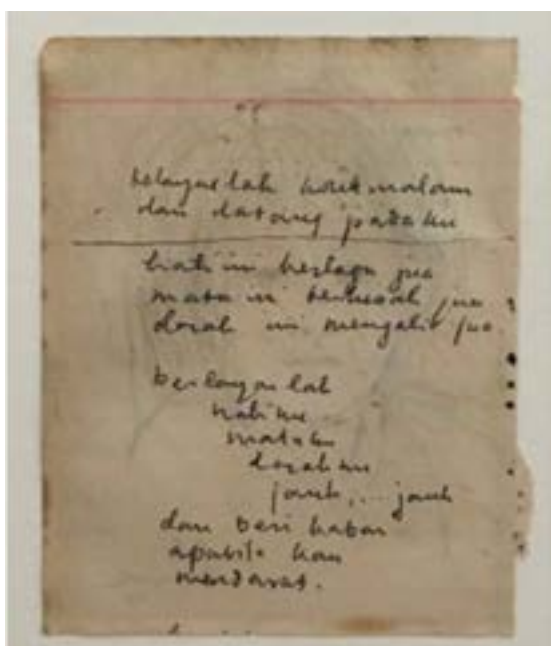 berlayarlah
dan datang padaku
hati ini berlagu jua
mata ini jua
darah ini mengalir jua
berlayarlah
hatiku
mataku
darahku
jauh,... jauh
dan beri kabar
apabila kau
mendarat.